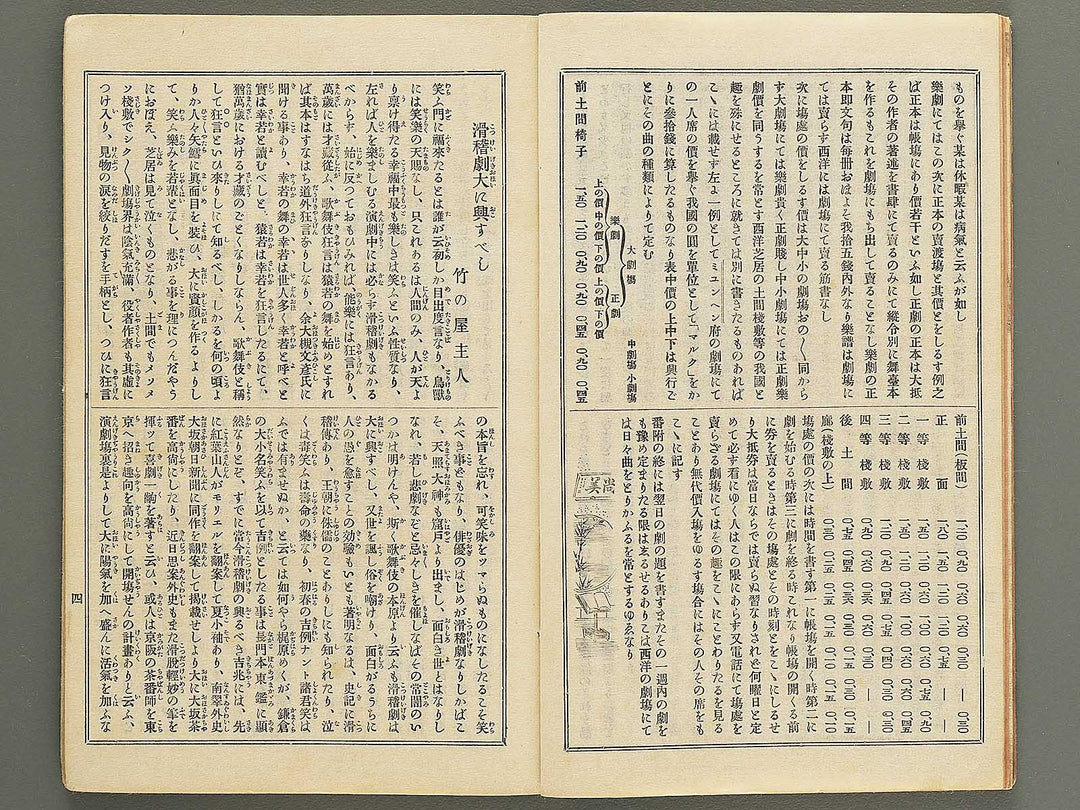 ものを擧ぐ某は休暇某は病氣と云ふが如し
樂劇にてはこの次に正本の賣渡塲と其價とをしるす例之
ば正本は帳塲にあり價若干といふ如し正劇の正本は大抵
その作者の著述を書肆にて賣るのみにて縱令別に舞臺本
を作るもこれを劇塲にもち出して賣ることなし樂劇の正
本即文句は毎冊おほよそ我拾五錢內外なり樂譜は劇塲に
ては賣らず西洋には劇塲にて賣る筋書なし
次に塲處の價をしるす價は大中小の劇塲おの〱同から
す大劇塲にては樂劇貴く正劇賤し中小劇塲にては正劇樂
劇價を同うするを常とす西洋芝居の土間棧敷等の我國と
趣を殊にせるところに就きては別に書きたるものあれば
こヽには載せず左に一例としてミユンヘン府の劇塲にて
の一人席の價を擧ぐ我國の圓を單位として「マルク」をか
りに參拾錢に算したるものなり表中價の上中下は興行ご
とにその曲の種類によりて定む
大劇塲 中劇塲 小劇塲
樂劇 正劇
上の價 中の價 下の價 上の價 下の價
前土間椅子 一、五〇 一、二〇 〇、九〇 〇、九〇 〇、四五 〇、九〇 〇、四五
前土間(板間)
正面
一等棧敷
二等棧敷
三等棧敷
四等棧敷
後土間
廊(棧敷の上)
塲處の價の次には時間を書す第一に帳塲を開く時第二に
劇を始むる時第三に劇を終る時これなり帳塲の開くる前
に券を賣るときはその塲處とその時刻とをこヽにしるせ
り大抵券は當日ならでは賣らぬ習なりされど何曜日と定
めて必す看にゆく人はこの限にあらす又電話にて塲處を
賣らざる劇塲にてはその趣をこヽにことわりたるを見る
ことあり無代價入塲をゆるす塲合にはその人々その席をも
こヽに記す
番附の終には翌日の劇の題を書すまたその一週內の劇を
も豫め定まりたる限は玄るせるありこは西洋の劇塲にて
は日々曲をとりかふるを常とするゆゑなり
滑稽劇大に興すべし
竹の屋主人
笑ふ門に福來たるとは誰が云初しか目出度言なり、鳥獸
には笑樂の天賜なし、只これあるは人間のみ、人が天よ
り禀け得たる幸福中最も樂しきは笑ふといふ性質なり、
左れば人を樂ましむる演劇中には必らず滑稽劇もなかる
べからず、始に反つておもひみれば、能樂には狂言あり、
萬歳には才藏從ふ、歌舞伎狂言は猿若の舞を始めとすれ
ば其本はすなはち道外狂言なりしなり、余大槻文彥氏に
聞ける事あり、幸若の舞の幸若は世人多く幸若と呼べど
實は幸若と讀むべしと、猿若は幸若を狂言したるにて、
猶萬歳における才藏のごとくなりしならん、歌舞伎と稱
して狂言といひ來りしにて知るべし、しかるを何の頃よ
りか人々矢鱈に眞面目を裝ひ、大に賢顏を作るよりし
て、笑ふ樂みを若輩となし、悲がる事を理につんだやう
におぼえ、芝居は見て泣くものとなり、土間でもメソメ
ソ棧敷でシク〱劇塲界は陰氣充滿、役者作者も其虛に
つけ入り、見物の淚を絞りだすを手柄とし、つひに狂言
の本旨を忘れ、可笑味をツマらぬものになしたるこそ笑
ふべき事ともなり、俳優のはじめが滑稽劇なりしかばこ
そ、天照大神も窟戶より出まし、面白き世とはなりし
なれ、若し悲劇などと忌々しきを催しなばその常闇のい
つかは明けんや、斯く歌舞伎の本原より云ふも滑稽劇は
大に興すべし、又世を諷し俗を嘲けり、面白がるうらに
人の愚を悛すことの効驗もいとも著明なるは、史記に滑
稽傳あり、王朝に侏儒のことありしにも知られたり、泣
くは毒笑ふは壽命の藥なり、初春の吉例ナント諸君笑は
ふでは有ませぬか、と云ては如何やら梶原めくが、鎌倉
の大小名笑ふを以て吉例としたる事は長門本東鑑に顯
然なりとぞ、すでに當今滑稽劇の興るべき吉兆には、先
に紅葉山人がモリエルを翻案して夏小袖あり、南翠外史
大坂朝日新聞に同作を翻案して揭載せしより大に大坂茶
番を高尙にしたり、近日思案外史もまた滑脫輕妙の筆を
揮ツて喜劇一齣を著すと云ひ、或人は京阪の茶番師を東
京へ招き趣向を高尙にして開塲せんの計畫ありと云ふ、
演劇塲裏是よりして大に陽氣を加へ盛んに活氣を加ふな
四